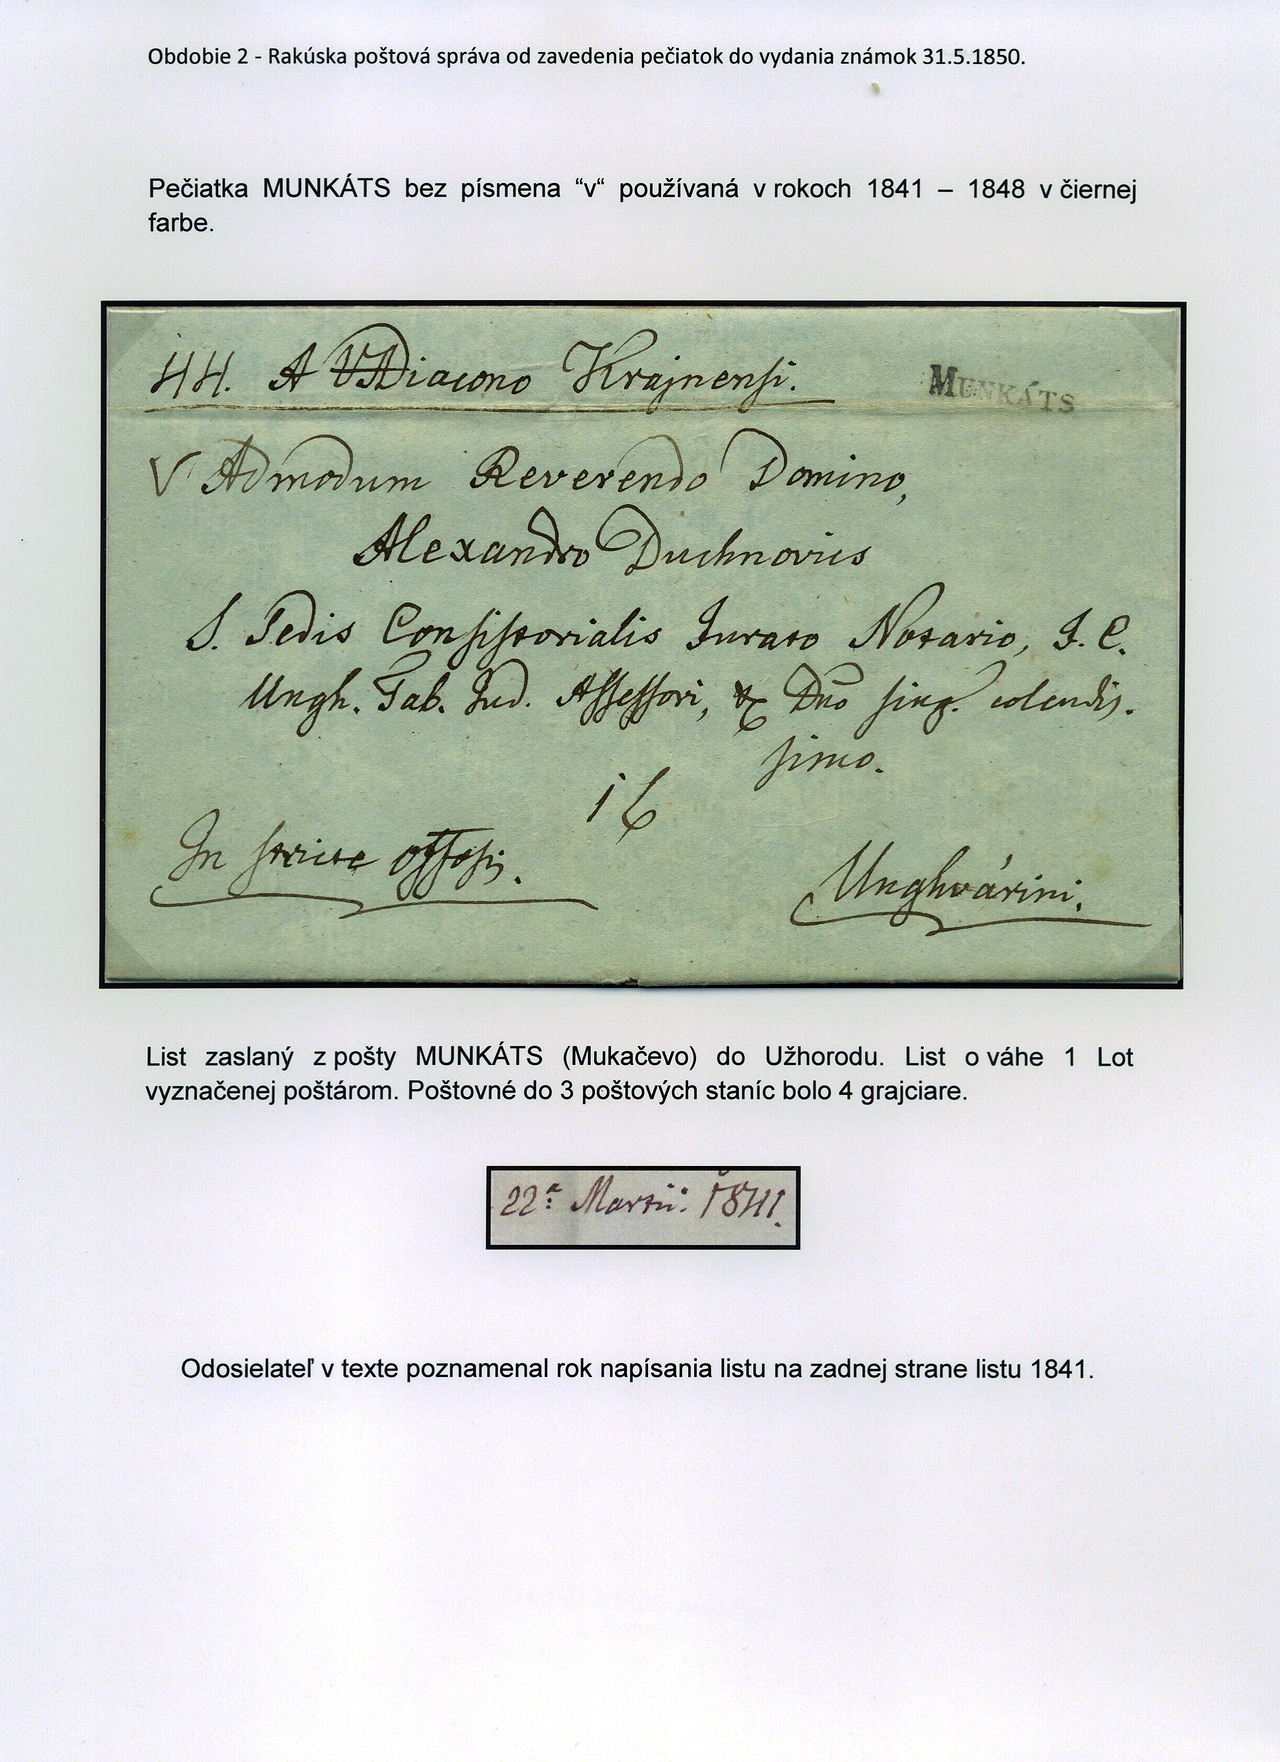 Obdobie 2 - Rakúska poštová správa od zavedenia pečiatok do vydania známok 31.5.1850.
Pečiatka MUNKÁTS bez písmena “v“ používaná v rokoch 1841 – 1848 v čiernej
farbe.
44. A VADiacono Krajnensi.
MUNKÁTS
V Admodum Reverendo Domino,
Alexandro Duchnovics
S. Sedis Consistorialis Jurato Notario, I. C.
Ungh. Tab. Jud. Assessori, & Dno sing. colendis.
simo.
16
In stricte offosis.
Unghvárini.
List zaslaný z pošty MUNKÁTS (Mukačevo) do Užhorodu. List o váhe 1 Lot
vyznačenej poštárom. Poštovné do 3 poštových staníc bolo 4 grajciare.
22a Martii: 1841.
Odosielateľ v texte poznamenal rok napísania listu na zadnej strane listu 1841.